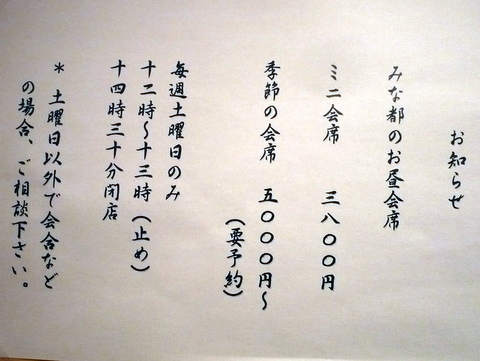 お知らせ
みな都のお昼会席
ミニ会席 三八〇〇円
季節の会席 五〇〇〇円〜
(要予約)
毎週土曜日のみ
十二時〜十三時(止め)
十四時三十分閉店
* 土曜日以外で会合など
の場合、ご相談下さい。